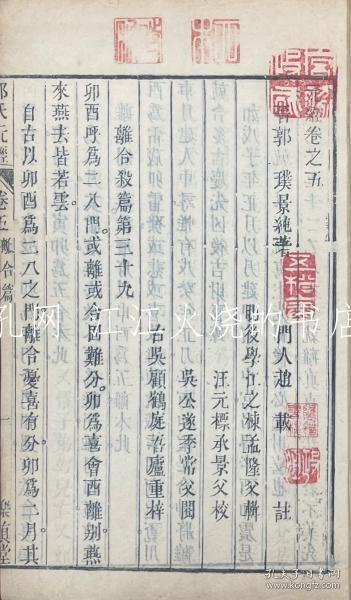 元經卷之五
晉郭璞景純著 門人趙載註
明後學江之棟孟隆父輯
汪元標承景父校
吳公遂季常父閱
古吳顧鶴庭吾廬重梓
離合殺篇第三十九
卯酉呼爲二八門或離或合因難分卯爲喜會酉離别燕
來燕去皆若雲
自古以卯酉爲二八之門離合憂喜有分卯爲二月其
郭氏元經 卷五 離合篇 一 樂真堂
孔网 江江火烧的书店
孔夫子旧书网